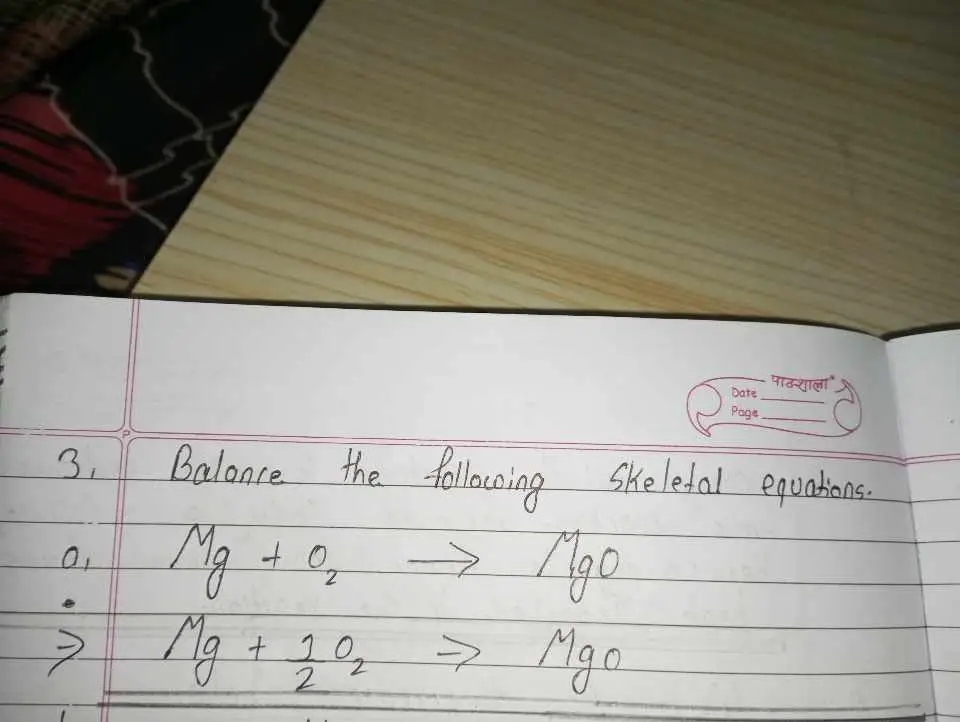 पाठशाला
Date
Page
3. Balance the following skeletal equations.
a. Mg + O₂ → MgO
⇒ Mg + 1/2 O₂ → MgO